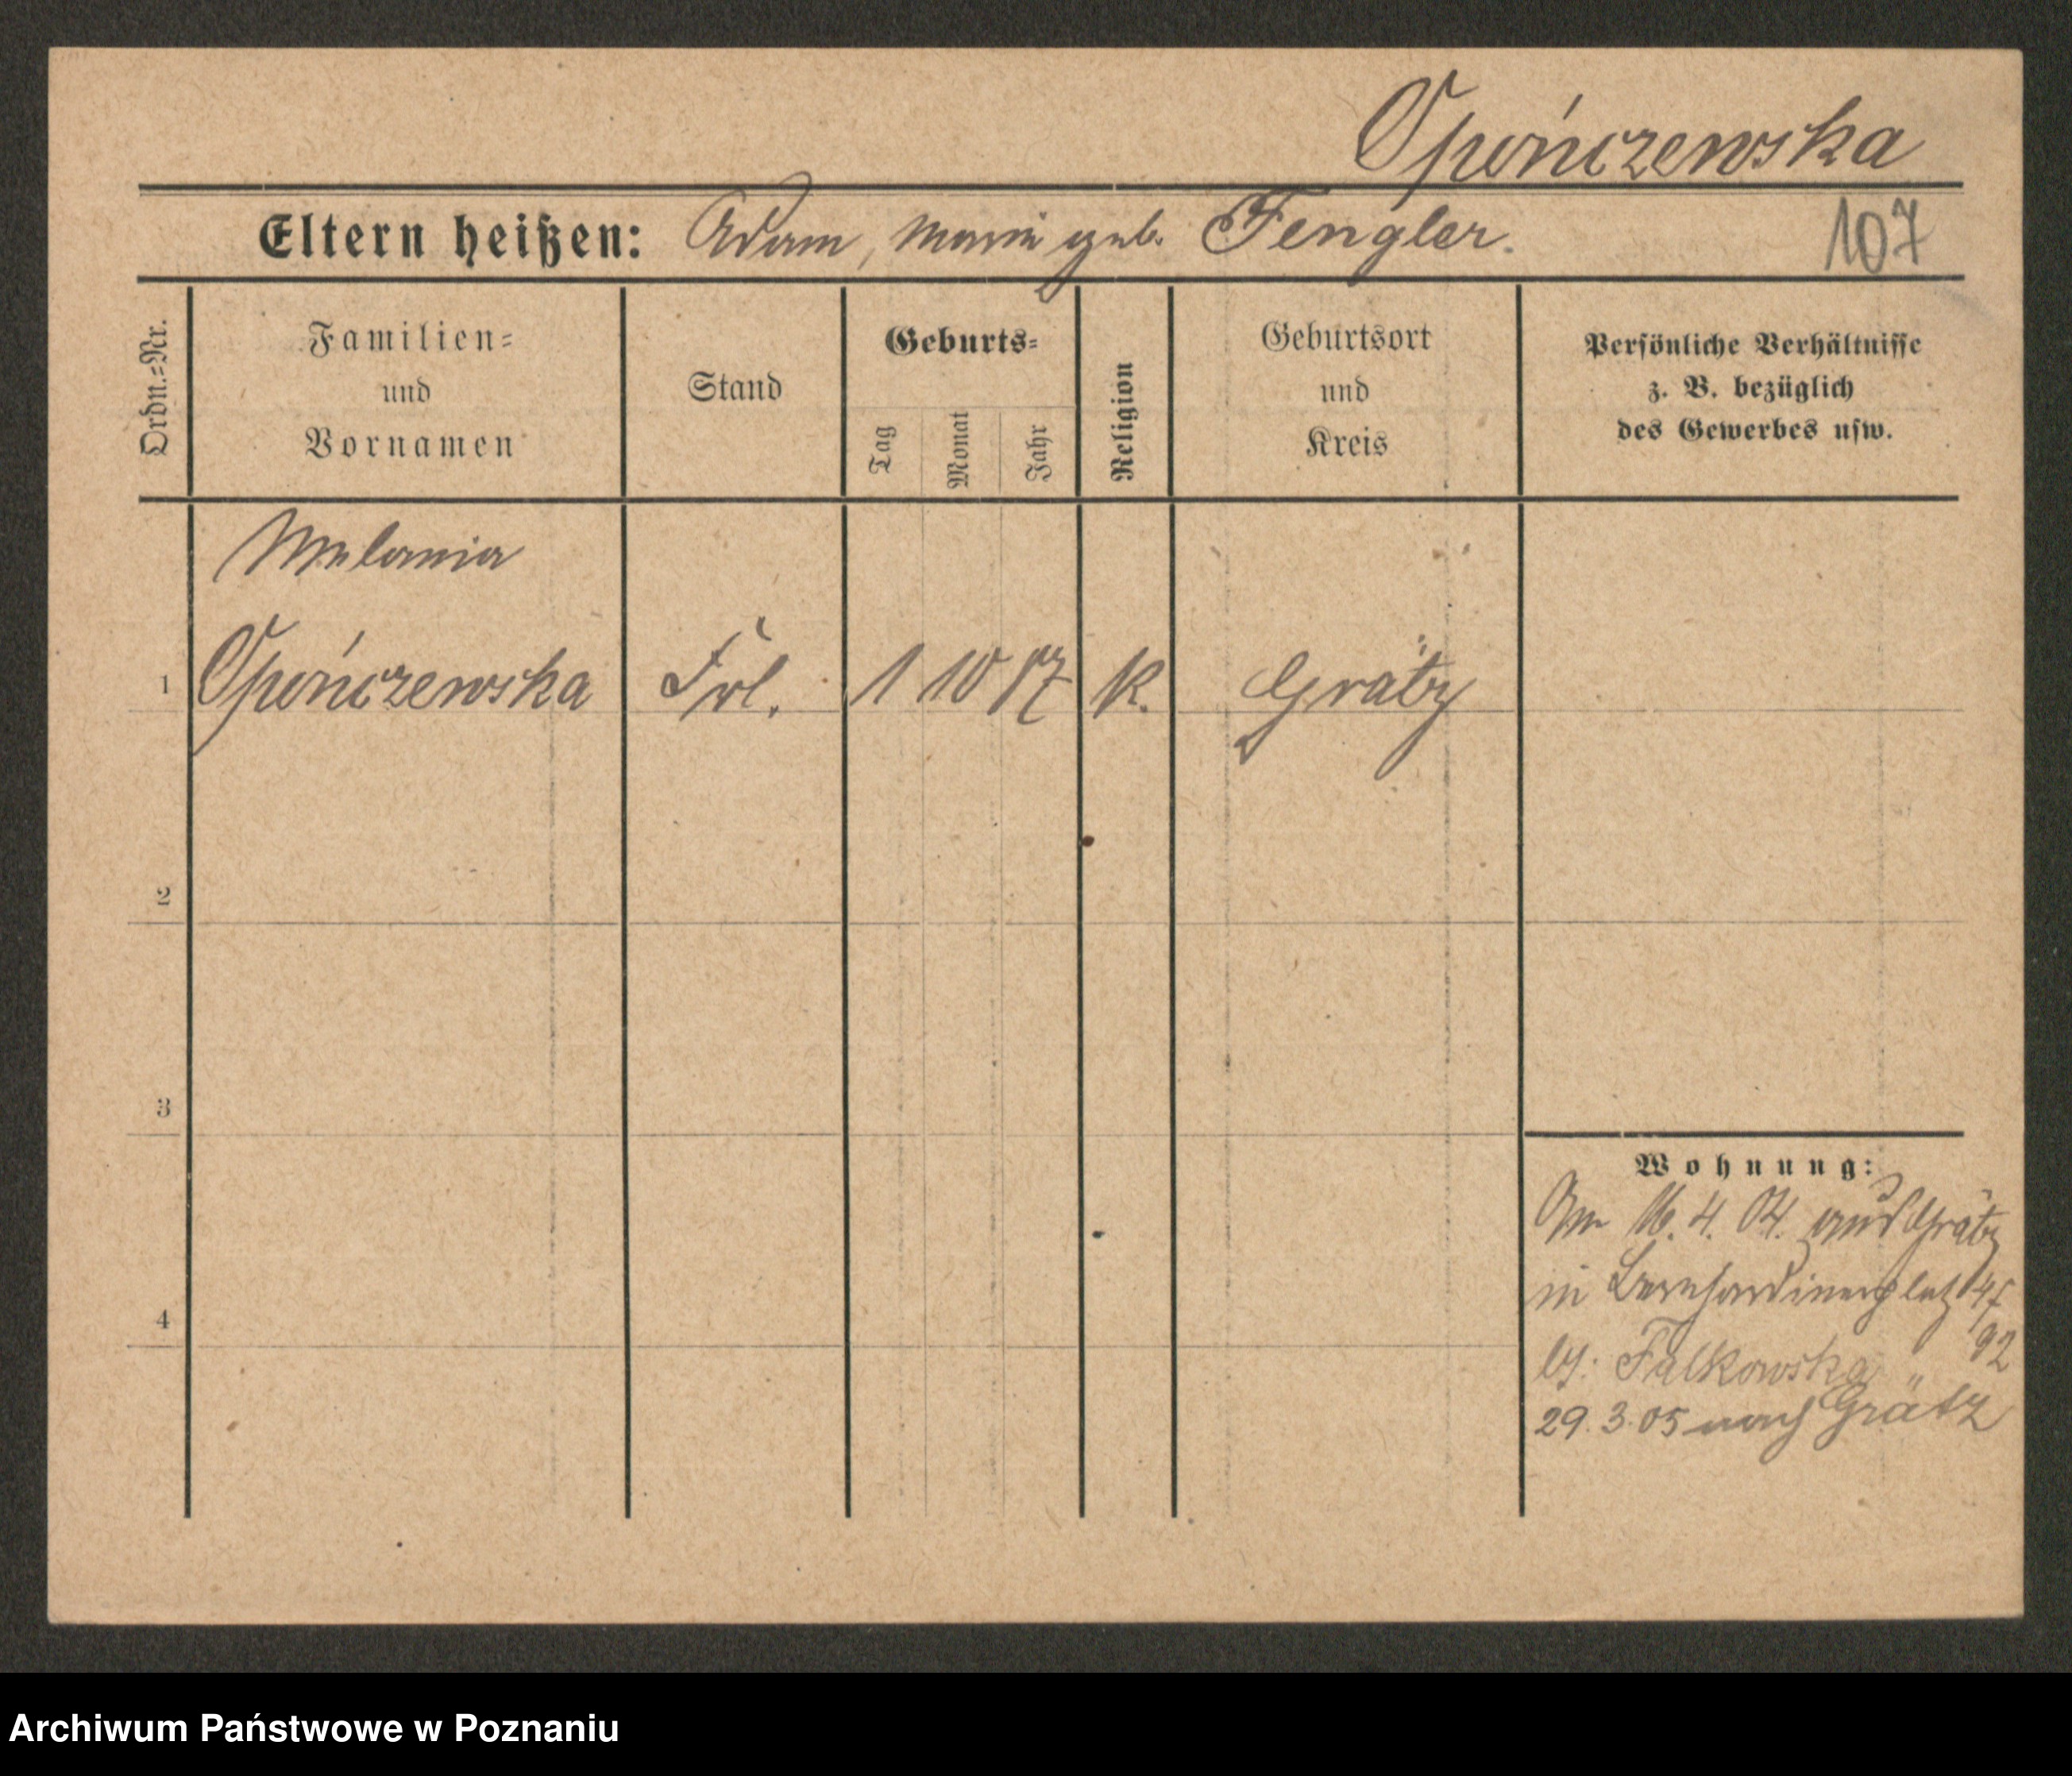 Opończewska
Eltern heißen: Adam, Marie geb. Fengler.
107
Ordn.=Nr.
Familien=
und
Vornamen
Stand
Geburts=
Tag
Monat
Jahr
Religion
Geburtsort
und
Kreis
Persönliche Verhältnisse
z. B. bezüglich
des Gewerbes usw.
Melania
1 Opończewska Frl. 1 10 87 K. Grätz
2
3
4
Wohnung:
Am 16. 4. 04. aus Grätz
in Bernhardinerplatz
bei: Falkowska
29. 3. 05 nach Grätz
Archiwum Państwowe w Poznaniu